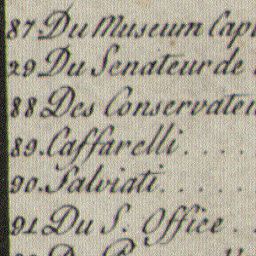 87. Du Museum Capi
29. Du Senateur de
88. Des Conservateu
89. Caffarelli . . . .
90. Salviati . . . . .
91. Du S. Office . .